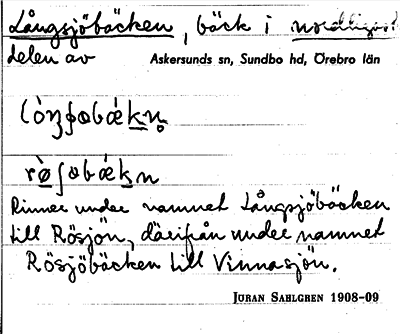 Långsjöbäcken, bäck i nordligast
delen av Askersunds sn, Sundbo hd, Örebro län
Rinner under namnet Långsjöbäcken
till Rösjön, därifrån under namnet
Rösjöbäcken till Vinnasjön.
JÖRAN SAHLGREN 1908-09